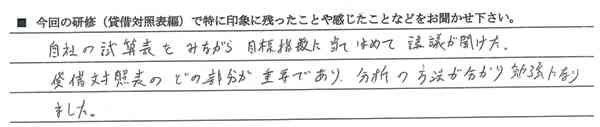 ■ 今回の研修(貸借対照表編)で特に印象に残ったことや感じたことなどをお聞かせ下さい。
自社の試算表をみながら目標指数に当てはめて講議が聞けた。
貸借対照表のどの部分が重要であり、分析の方法が分かり勉強になり
ました。